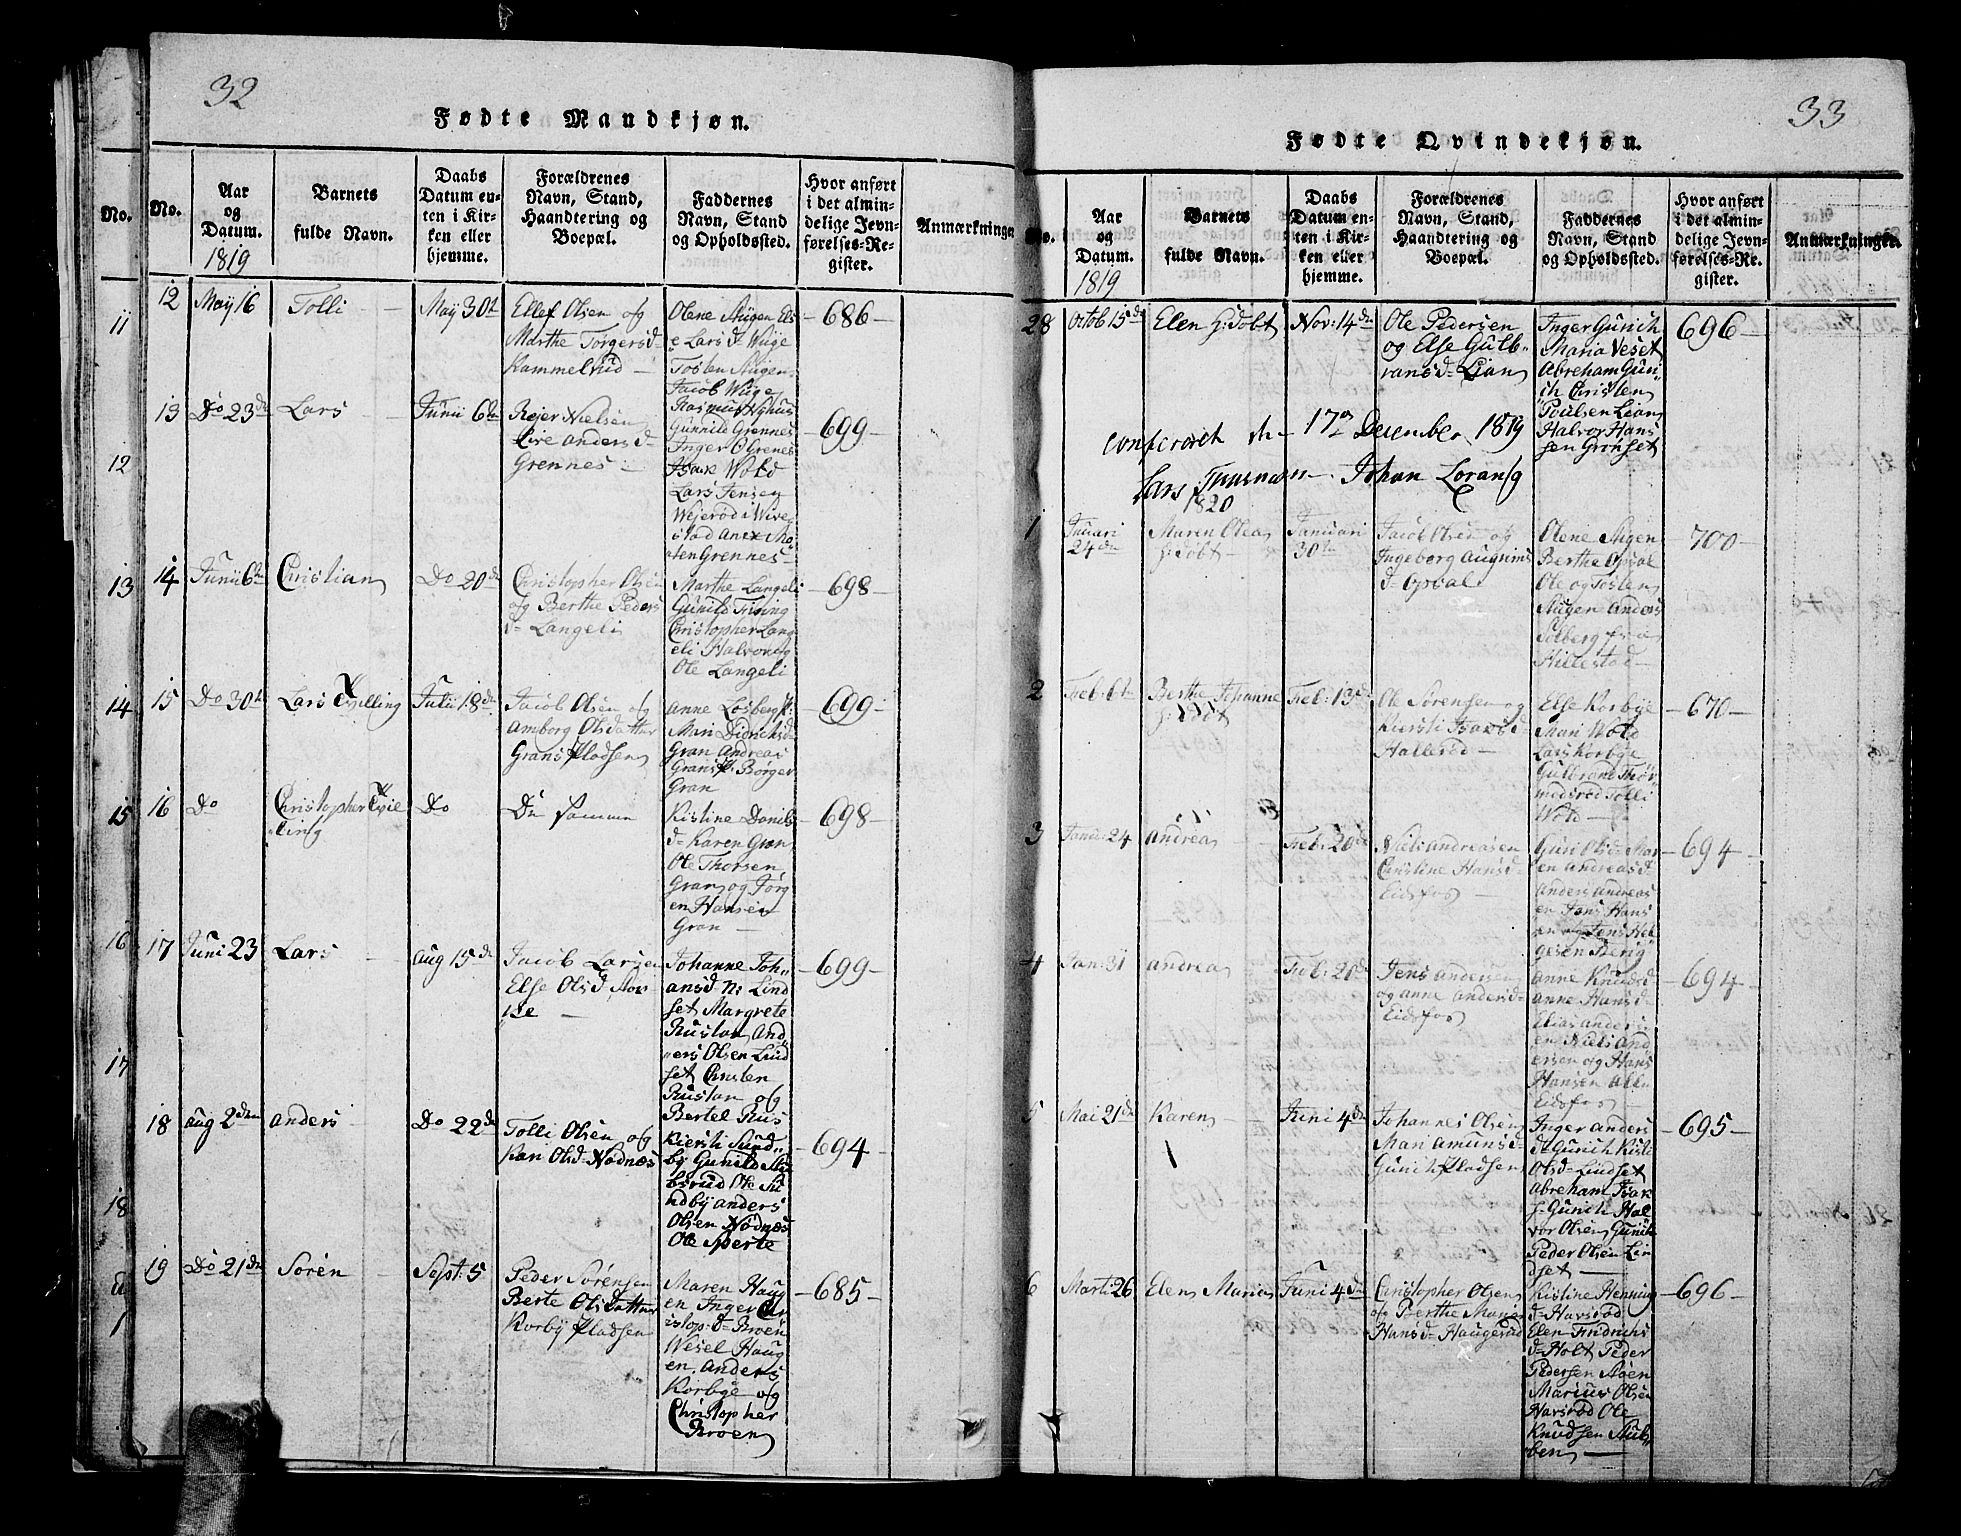 32
Fødte Mandkjøn.
No.
No.
Aar
og
Datum.
1819
Barnets
fulde Navn.
Daabs
Datum en-
ten i Kir-
ken eller
hjemme.
Forældrenes
Navn, Stand,
Haandtering og
Boepæl.
Faddernes
Navn, Stand
og Opholdssted.
Hvor anført
i det almin-
delige Jevn-
førelses-Re-
gister.
Anmærkninger
11
12
13
14
15
16
17
18
12
May 16
Tolli
May 30te
Ellef Olsen og
Marthe Torgersd
Kammelrud
Olene Augen Els
e Larsd Wiige
Tosten Augen
Jacob Wiige
686
13
Do 23de
Lars
Junii 6te
Rejer Nielsen
Live Andersd
Grennes
Rasmus Nyhus
Gunild Grennes
Inger O Grenes
Isak Wold
Lars Jensen
699
14
Junii 6te
Christian
Do 20de
Christopher Olsen
og Berthe Peders
d Langeli
Marthe Langeli
Gunild
Christopher Lang
eli Halvor og
Ole Langeli
698
15
Do 30te
Lars Tvilling
Julii 18de
Jacob Olsen og
Amborg Olsdatter
Grans Pladsen
Anne Losberg
Mari Didrichsd
Gran Andreas
Grans Pl. Børger
Gran
699
16
Do
Christopher Tvil
ling
Do
De samme
Kistine Daniels
d Karen Gran
Ole Thorsen
Gran og Jørg
en Hansen
Gran
698
17
Juni 23
Lars
Aug 15de
Jacob Larsen
Else Olsd
Johanne Joh
ansd N: Lind
set Margrete
Rustan And
ers Olsen Lind
set Christen
Rustan og
Bertel Rus
699
18
Aug 2den
Anders
Do 22de
Tolli Olsen og
Kari Olsd Nodnæs
Kiersti Sund
by Gunild
bsrud Ole Su
ndby Anders
Olsen Nodnæs
Ole Sperte
694
19
Do 21de
Søren
Sept: 5
Peder Sørensen
Berte Olsdatter
Korby Pladsen
Maren Haug
en Inger Chr
istop: d Broen
Wesel Haug
en Anders
Korbye og
Christopher
Broen
685
33
Fødte Qvindekjøn.
No.
Aar
og
Datum.
1819
Barnets
fulde Navn.
Daabs
Datum en-
ten i Kir-
ken eller
hjemme.
Forældrenes
Navn, Stand,
Haandtering og
Boepæl.
Faddernes
Navn, Stand
og Opholdssted.
Hvor anført
i det almin-
delige Jevn-
førelses-Re-
gister.
Anmærkninger.
28
Octob 15de
Elen h: døbt
Nov: 14de
Ole Pedersen
og Else Gulb
ransd Lian
Inger Gurich
Maria Veset
Abreham Guri
ch Christen
Poulsen Lian
Halvor Hans
sen Grønset
696
confereret den 17de December 1819
Lars Johan
1820
1
Januari
24de
Maren Olea
h: døbt
Januari
30te
Jacob Olsen og
Ingeborg
d Opsal
Olene Augen
Berthe Opsal
Ole og Tosten
Augen Anders
Solberg fra
Hillestad
700
2
Feb: 6te
Berthe Johanne
h: døbt
Feb: 13de
Ole Sørensen og
Kiersti Isaksd
Hallerød
Else Korbye
Mari Wold
Lars Korbye
Gulbrand Thor
modsrød Tolli
Wold
670
3
Janu: 24
Andrea
Feb: 20de
Niels Andreasen
Christine Hansd
Eidsfos
Guri Olsd Mar
en Andreasd
Anders Andreas
en Jens Hans
en og Jens Hel
gesen Berig
694
4
Jan: 31
Andrea
Feb: 20de
Jens Andersen
og Anne Andersd
Eidsfos
Anne Knudsd
Anne Hansd
Elias Anders
en Niels And
ersen og Hans
Hansen Alle
Eidsfos
694
5
Mai 21de
Karen
Juni 4de
Johannes Olsen
Mari Amunsd
Gurich Pladsen
Inger Anders
d Gurich Kisti
Olsd Lindset
Abreham Isak
s: Gurich Hal
vor Olsen Gurich
Peder Olsen Lin
dset
695
6
Marti: 26
Elen Maria
Juni 4de
Christopher Olsen
og Berthe Marie
Hansd Haugerud
Kistine Henning
d Havsrød
Elen Fredrichs
d Holt Peder
Pedersen Moen
Marius Olsen
Havsrød Ole
Knudsen
696